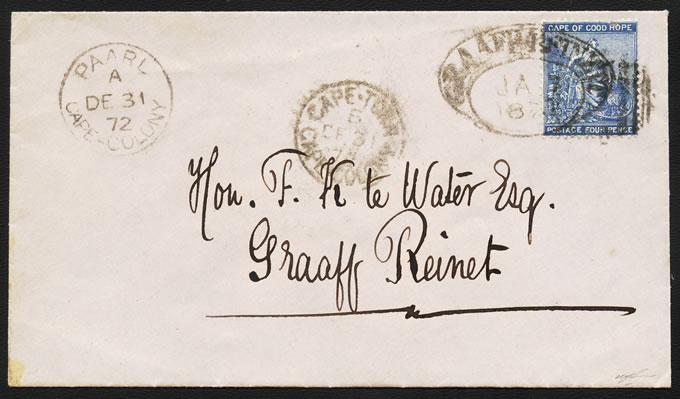 PAARL
A
DE 31
72
CAPE-COLONY
CAPE-TOWN
DE 31
CAPE COLONY
GRAAFF-REINET
JA
187
CAPE OF GOOD HOPE
POSTAGE FOUR PENCE
Hon. F. K te Water Esq.
Graaff Reinet